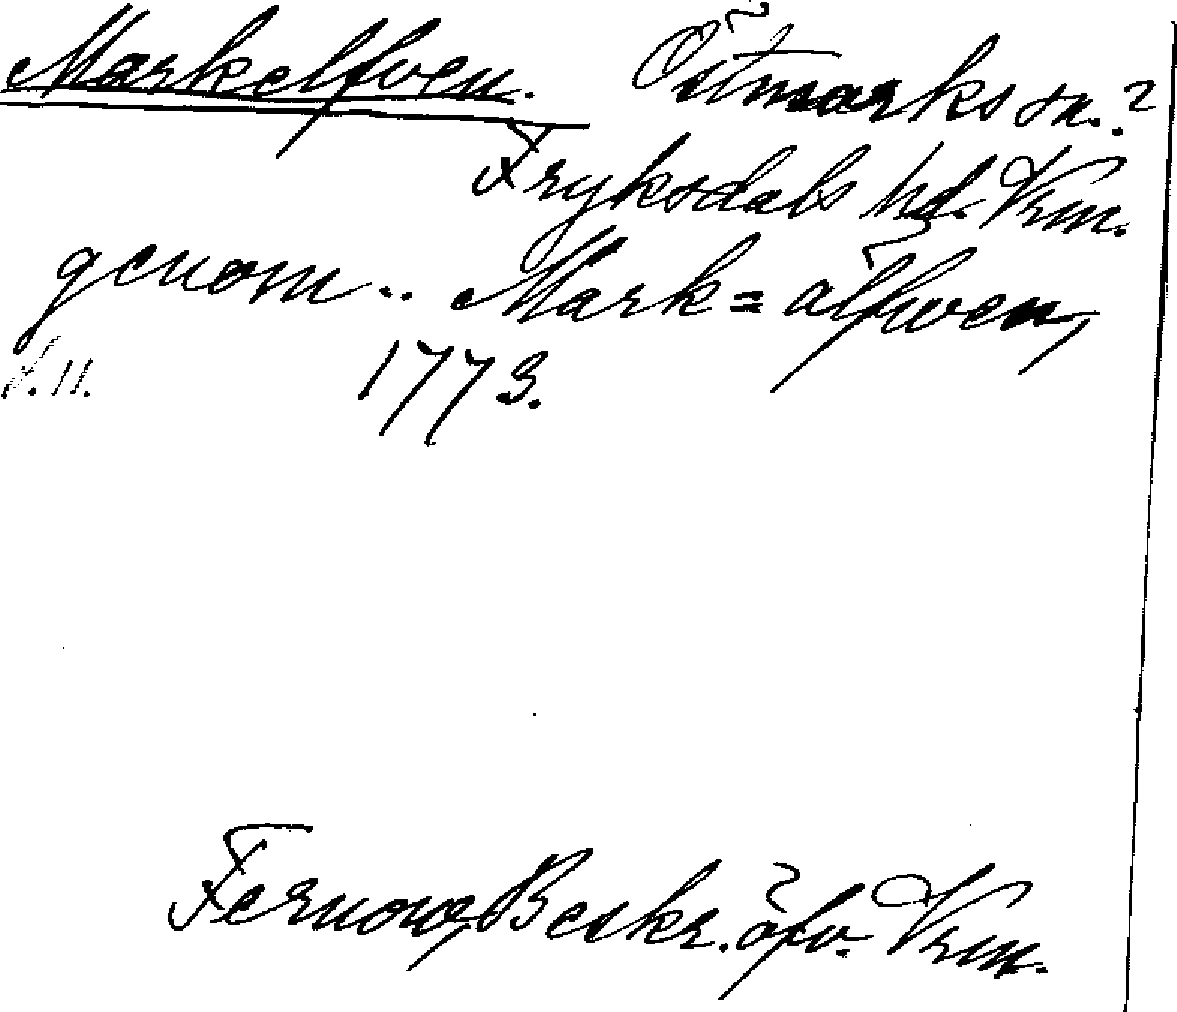 Markelfven. Östmarks sn.?
Fryksdals hd. Vrm.
genom.. Mark=älfwen,
s. 11. 1773.
Fernow, Beskr. öfv. Vrm.